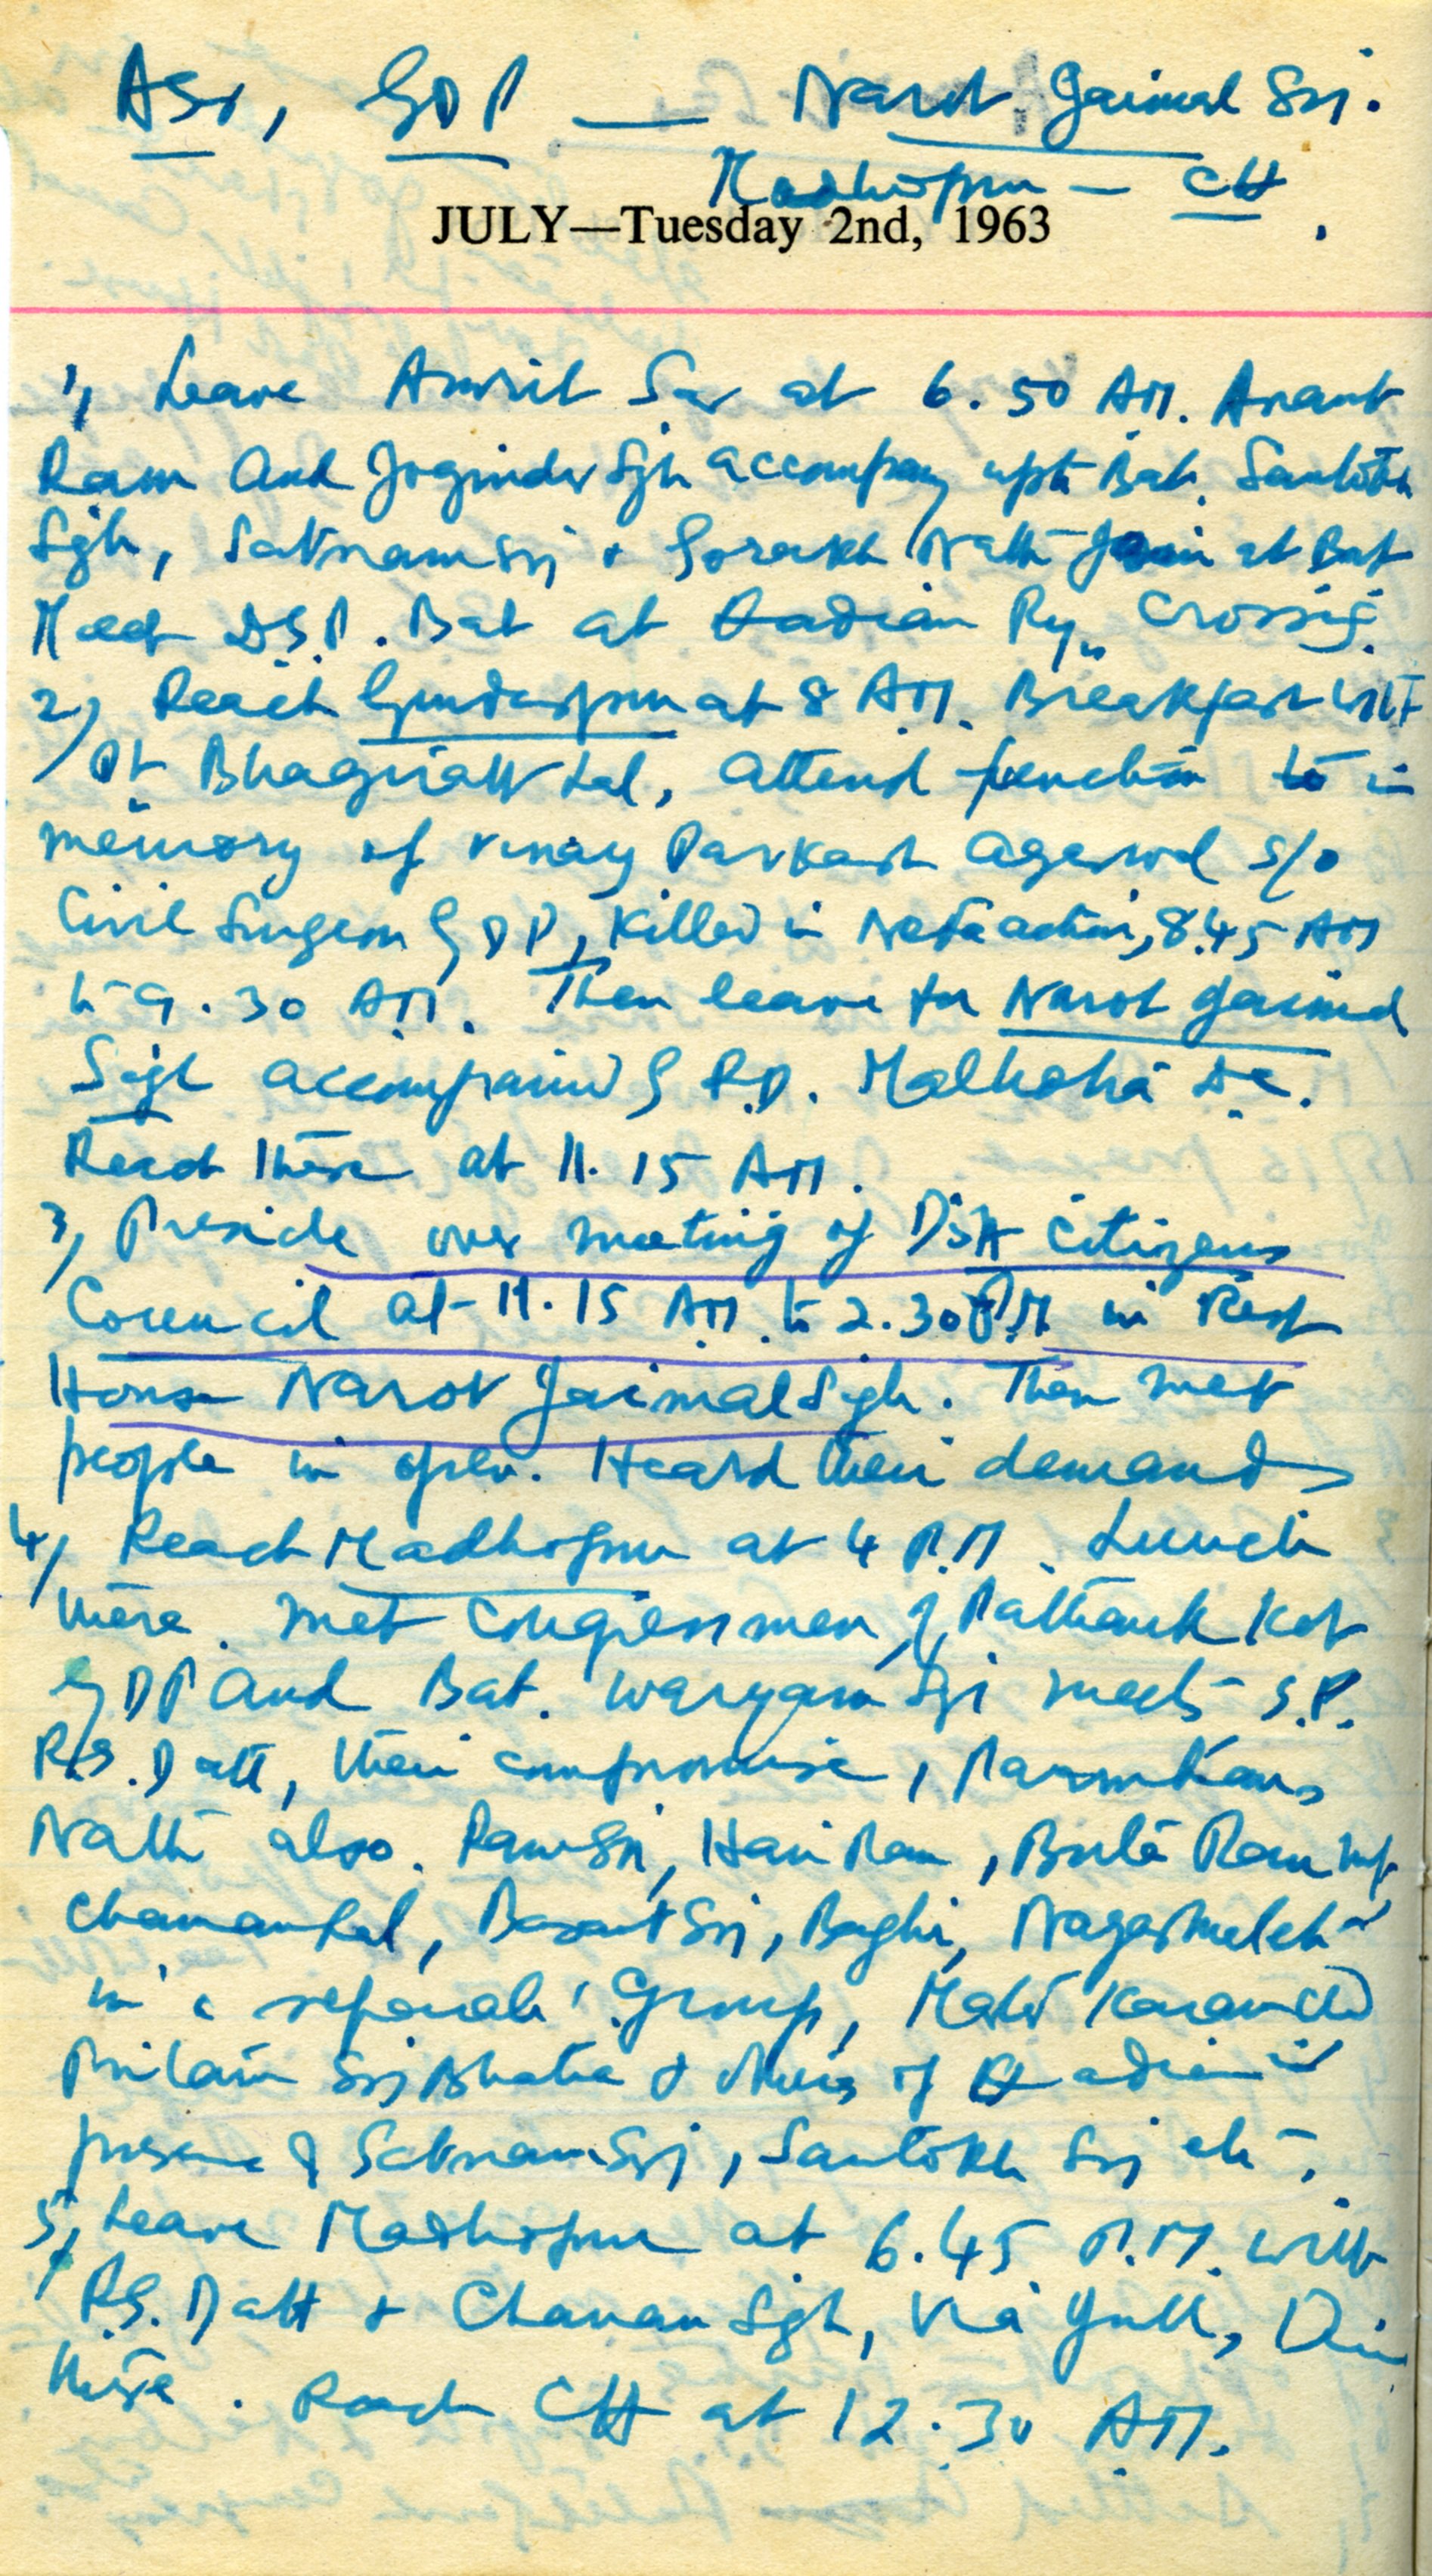 ASr, GDP — Narot Jaimal Srj.
Madhopur — CH.
JULY—Tuesday 2nd, 1963
1, Leave Amrit Sar at 6.50 AM. Anant
Ram and Joginder Sgh accompany upto Bat. Santokh
Sgh, Satnam Srj + Gorakh Nath Join at Bat
Meet D.S.P. Bat at Qadian Ry. Crossig.
2, Reach Gurdaspur at 8 AM. Breakfast with
Pt Bhagirath Lal, attend function to in
memory of Vinay Parkash Agerwal s/o
Civil Surgeon GDP, Killed in Nefa action, 8.45 AM
to 9.30 AM. Then leave for Narot Jaimal
Sigh accompanied by R.D. Malhotra D.C.
Reach there at 11.15 AM.
3, Preside over meeting of Distt Citizens
Council at 11.15 AM. to 2.30 P.M in Rest
House Narot Jaimal Sgh. Then met
people in open. Heard their demands
4, Reach Madhopur at 4 P.M. Lunch
there. Met Congressmen of Pathank Kot
GDP and Bat. Waryam Sgi meets S.P.
R.S. Datt, their compromise,
Nath also. Ram Srj, Hari Ram, Buta Ram
Chaman Lal, Basant Srj, Baghi,
in a 'separate' Group,
Pritam Srj Bhatia + of Qadian in
presence of Satnam Srj, Santokh Srj etc.
5, Leave Madhopur at 6.45 P.M. with
R.S. Datt + Chanan Sgh, Via Jull,
there. Reach CH at 12.30 AM.